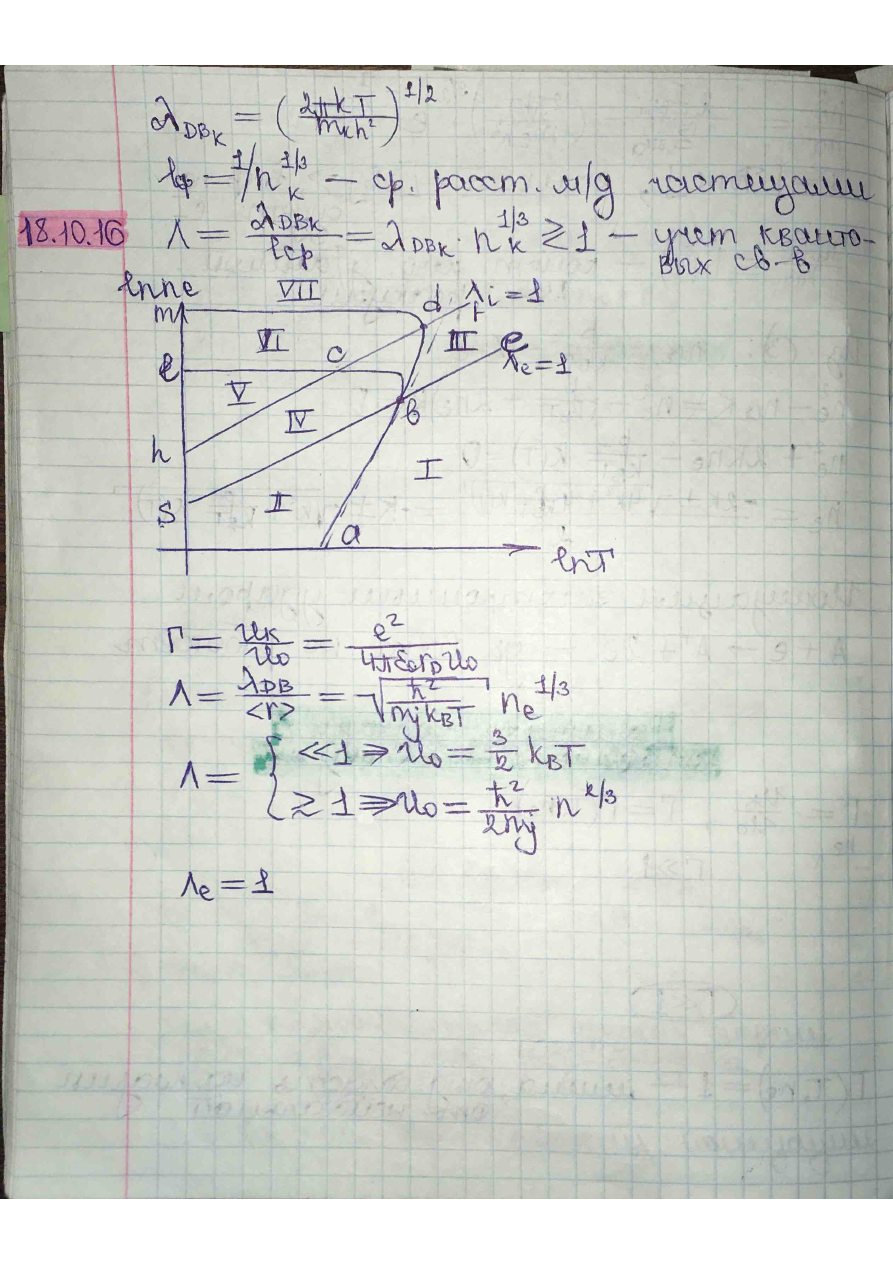 λ_DBк = (2πkT / mкh²)^1/2
lср = 1/nк^1/3 — ср. расст. м/д частицами
18.10.16 Λ = λDBк / lср = λDBк · nк^1/3 ≳ 1 — учет кванто-
вых св-в
lnne VII d Λi = 1
m f
VI III e
c Λe = 1
l
V в
IV
h I
S II
a
lnT
Γ = uк / u0 = e² / 4πε0rDu0
Λ = λDB / <r> = √(ħ² / mjkBT) ne^1/3
Λ = { ≪ 1 ⇒ u0 = 3/2 kBT
≳ 1 ⇒ u0 = ħ² / 2mj n^2/3
Λe = 1